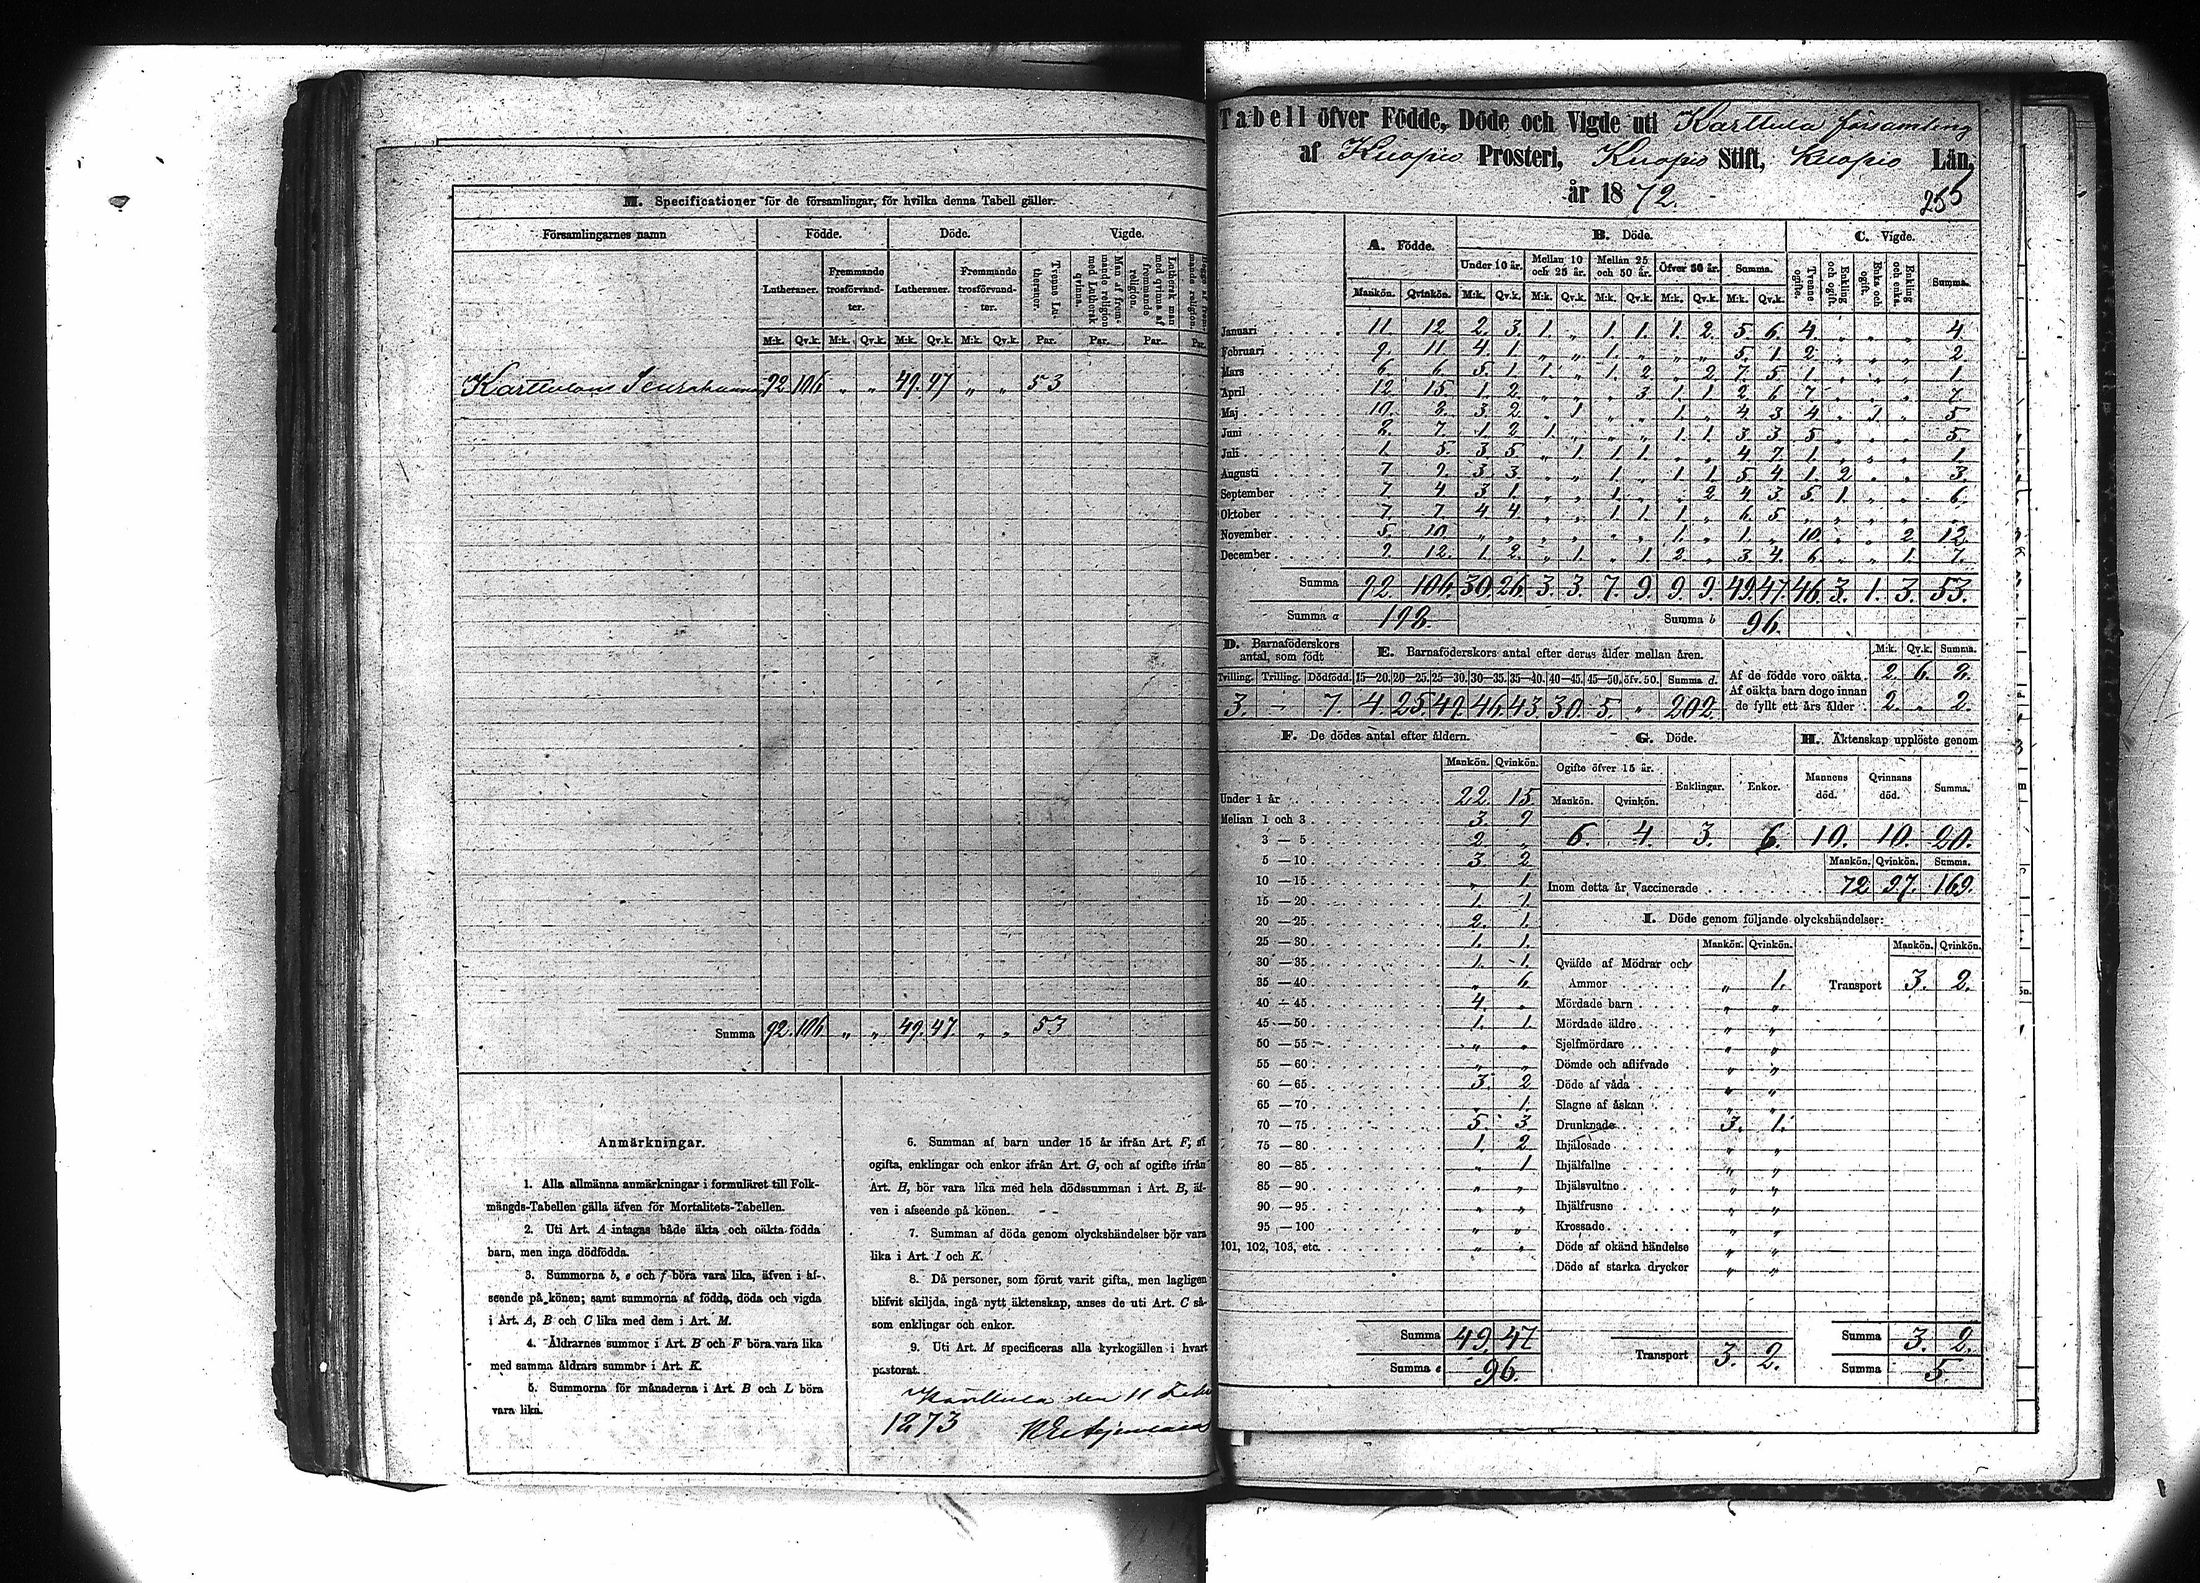 M. Specificationer för de församlingar, för hvilka denna Tabell gäller.
Församlingarnes namn Födde. Döde. Vigde.
Lutheraner. Fremmande trosförvandter. Lutheraner. Fremmande trosförvandter. Tvenne Lutheraner. Man af fremmande religion med Luthersk qvinna. Luthersk man med qvinna af fremmande religion.
M:k. Qv.k. M:k. Qv.k. M:k. Qv.k. M:k. Qv.k. Par. Par. Par. Par.
Karttulans 92. 106 „ „ 49. 47 „ „ 53
Summa 92. 106. „ „ 49. 47. „ „ 53
Anmärkningar.
1. Alla allmänna anmärkningar i formuläret till Folk-
mängds-Tabellen gälla äfven för Mortalitets-Tabellen.
2. Uti Art. A intagas både äkta och oäkta födda
barn, men inga dödfödda.
3. Summorna b, e och f böra vara lika, äfven i af-
seende på könen; samt summorna af födda, döda och vigda
i Art. A, B och C lika med dem i Art. M.
4. Åldrarnes summor i Art. B och F böra vara lika
med samma åldrars summor i Art. K.
5. Summorna för månaderna i Art. B och L böra
vara lika.
6. Summan af barn under 15 år ifrån Art. F, af
ogifta, enklingar och enkor ifrån Art. G, och af ogifte ifrån
Art. H, bör vara lika med hela dödssumman i Art. B, äf-
ven i afseende på könen.
7. Summan af döda genom olyckshändelser bör vara
lika i Art. I och K.
8. Då personer, som förut varit gifta, men lagligen
blifvit skiljda, ingå nytt äktenskap, anses de uti Art. C så-
som enklingar och enkor.
9. Uti Art. M specificeras alla kyrkogällen i hvart
pastorat.
Karttula den 11 Febr
1873
Tabell öfver Födde, Döde och Vigde uti Karttula församling
af Kuopio Prosteri, Kuopio Stift, Kuopio Län,
år 1872.
255
A. Födde. B. Döde. C. Vigde.
Under 10 år. Mellan 10 och 25 år. Mellan 25 och 50 år. Öfver 50 år. Summa. Tvenne ogifte. Enkling och ogift. Enka och ogift. Enkling och enka. Summa.
Mankön. Qvinkön. M:k. Qv.k. M:k. Qv.k. M:k. Qv.k. M:k. Qv.k. M:k. Qv.k.
Januari 11. 12. 2. 3. 1. „ 1. 1. 1. 2. 5. 6. 4. „ „ „ 4.
Februari 9. 11 4. 1. „ „ 1. „ „ „ 5. 1. 2. „ „ „ 2.
Mars 6. 6. 5. 1. 1. „ 1. 2. „ 2. 7. 5. 1. „ „ „ 1.
April 12. 15. 1. 2. „ „ „ 3. 1. 1. 2. 6. 7. „ „ „ 7.
Maj 3. 2. „ 1. „ „ 1. „ 4. 3. 4. „ 1. „ 5.
Juni 7. 1. 2. 1. „ „ „ 1. 1. 3. 3. 5. „ „ „ 5.
Juli 5. 3. 5. „ 1. 1. 1. „ „ 4. 7. 1. „ „ „ 1.
Augusti 7. 3. 3. „ „ 1. „ 1. 1. 5. 4. 1. 2. „ „ 3.
September 7. 4. 3. 1. „ „ 1. „ „ 2. 4. 3. 5. 1. „ „ 6.
Oktober 7. 7. 4. 4. „ „ 1. 1. 1. „ 6. 5. „ „ „ „ „
November 5. 10. „ „ „ „ „ „ 1. „ 1. „ 10. „ „ 2. 12.
December 12. 1. 2. „ 1. „ 1. 2. „ 3. 4. 6. „ „ 1. 7.
Summa 92. 106. 30. 26. 3. 3. 7. 9. 9. 9. 49. 47. 46. 3. 1. 3. 53.
Summa a 198. Summa b 96.
D. Barnaföderskors antal, som födt
E. Barnaföderskors antal efter deras ålder mellan åren.
M:k. Qv.k. Summa.
Tvilling. Trilling. Dödfödd. 15—20. 20—25. 25—30. 30—35. 35—40. 40—45. 45—50. öfv. 50. Summa d.
3. – 7. 4. 25. 49. 46. 43. 30. 5. „ 202.
Af de födde voro oäkta. 2. 6. 8.
Af oäkta barn dogo innan
de fyllt ett års ålder 2. „ 2.
F. De dödes antal efter åldern.
Mankön. Qvinkön.
Under 1 år 22. 15.
Mellan 1 och 3 3. 9.
3 — 5 2. „
5 — 10 3. 2.
10 — 15 „ 1.
15 — 20 1. 1.
20 — 25 2. 1.
25 — 30 1. 1.
30 — 35 1. 1.
35 — 40 „ 6.
40 — 45 4. „
45 — 50 1. 1.
50 — 55 „ „
55 — 60 „ „
60 — 65 3. 2.
65 — 70 „ 1.
70 — 75 5. 3.
75 — 80 1. 2.
80 — 85 „ 1
85 — 90 „ „
90 — 95 „ „
95 — 100 „ „
101, 102, 103, etc. „ „
Summa 49. 47
Summa e 96.
G. Döde.
Ogifte öfver 15 år. Enklingar. Enkor.
Mankön. Qvinkön.
6. 4. 3. 6.
H. Äktenskap upplöste genom
Mannens död. Qvinnans död. Summa.
10. 10. 20.
Mankön. Qvinkön. Summa.
Inom detta år Vaccinerade 72 97. 169.
I. Döde genom följande olyckshändelser:
Mankön. Qvinkön. Mankön. Qvinkön.
Qväfde af Mödrar och
Ammor „ 1. Transport 3. 2.
Mördade barn „ „
Mördade äldre „ „
Sjelfmördare „ „
Dömde och aflifvade „ „
Döde af våda „ „
Slagne af åskan „ „
Drunknade 3. 1.
Ihjälosade „ „
Ihjälfallne „ „
Ihjälsvultne „ „
Ihjälfrusne „ „
Krossade „ „
Döde af okänd händelse „ „
Döde af starka drycker „ „
Transport 3. 2.
Summa 3. 2.
Summa 5.